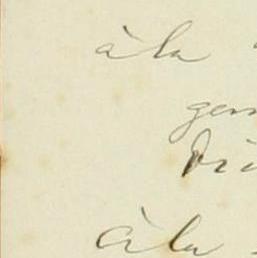 à la
gen
Di
à la